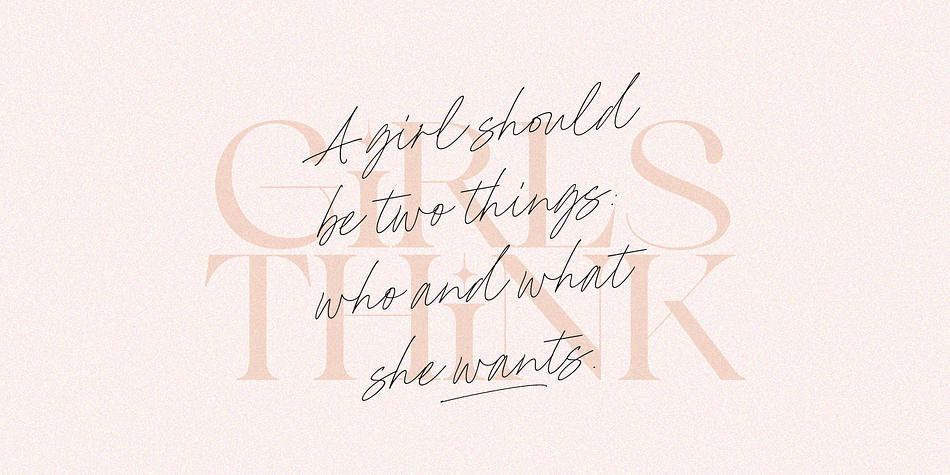 GiRLS
THiNK
A girl should
be two things:
who and what
she wants.